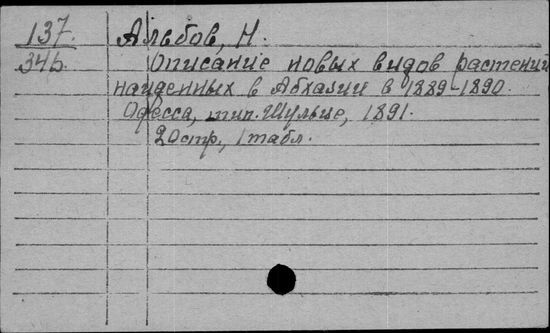 137. Альбов, Н.
345. Описание новых видов растений
найденных в Абхазии в 1889-1890.
Одесса, тип. Шульце, 1891.
20стр., 1 табл.